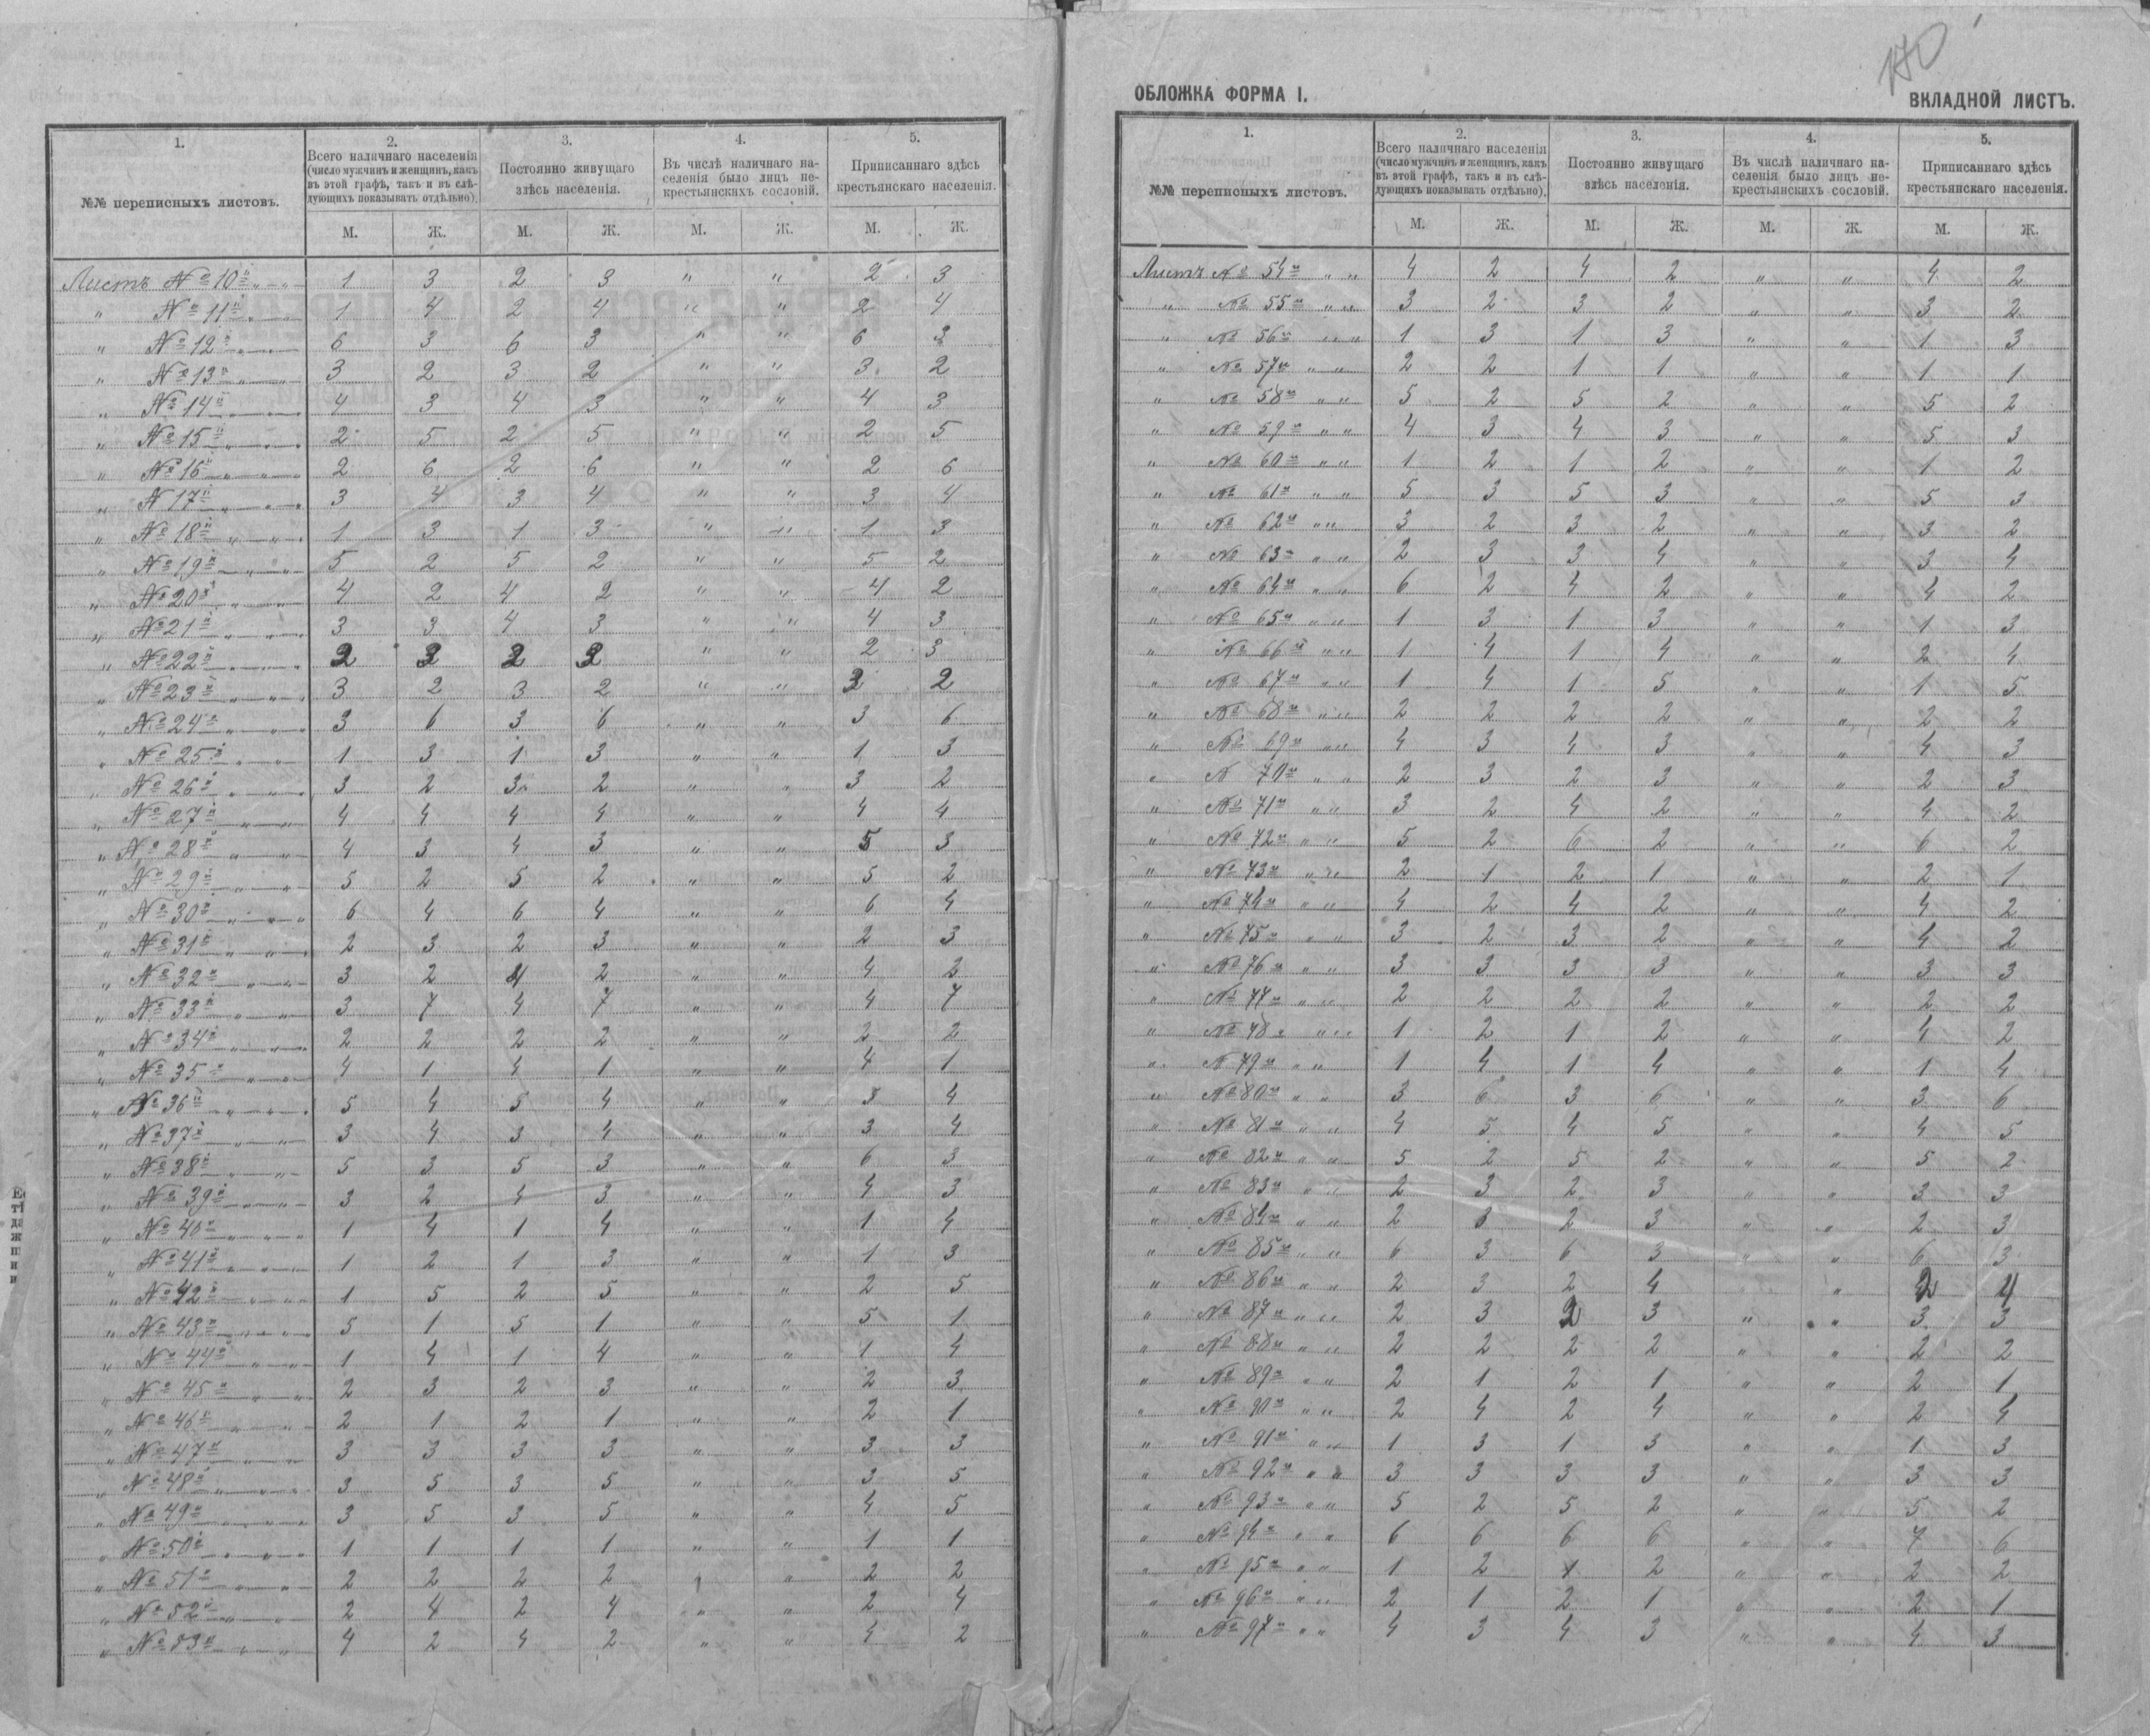 1.
№№ переписныхъ листовъ.
2.
Всего наличнаго населенія
(число мужчинъ и женщинъ, какъ
въ этой графѣ, такъ и въ слѣ-
дующихъ показывать отдѣльно).
3.
Постоянно живущаго
здѣсь населенія.
4.
Въ числѣ наличнаго на-
селенія было лицъ не-
крестьянскихъ сословій.
5.
Приписаннаго здѣсь
крестьянскаго населенія.
М. Ж. М. Ж. М. Ж. М. Ж.
Листъ № 10й „ „ 1 3 2 3 „ „ 2 3
„ № 11й „ „ 1 4 2 4 „ „ 2 4
„ № 12й „ „ 6 3 6 3 „ „ 6 3
„ № 13й „ „ 3 2 3 2 „ „ 3 2
„ № 14й „ „ 4 3 4 3 „ „ 4 3
„ № 15й „ „ 2 5 2 5 „ „ 2 5
„ № 16й „ „ 2 6 2 6 „ „ 2 6
„ № 17й „ „ 3 4 3 4 „ „ 3 4
„ № 18й „ „ 1 3 1 3 „ „ 1 3
„ № 19й „ „ 5 2 5 2 „ „ 5 2
„ № 20й „ „ 4 2 4 2 „ „ 4 2
„ № 21й „ „ 3 3 4 3 „ „ 4 3
„ № 22й „ „ 2 3 2 3 „ „ 2 3
„ № 23й „ „ 3 2 3 2 „ „ 3 2
„ № 24й „ „ 3 6 3 6 „ „ 3 6
„ № 25й „ „ 1 3 1 3 „ „ 1 3
„ № 26й „ „ 3 2 3 2 „ „ 3 2
„ № 27й „ „ 4 4 4 4 „ „ 4 4
„ № 28й „ „ 4 3 4 3 „ „ 5 3
„ № 29й „ „ 5 2 5 2 „ „ 5 2
„ № 30й „ „ 6 4 6 4 „ „ 6 4
„ № 31й „ „ 2 3 2 3 „ „ 2 3
„ № 32й „ „ 3 2 4 2 „ „ 4 2
„ № 33й „ „ 3 7 4 7 „ „ 4 7
„ № 34й „ „ 2 2 2 2 „ „ 2 2
„ № 35й „ „ 4 1 4 1 „ „ 4 1
„ № 36й „ „ 5 4 5 4 „ „ 5 4
„ № 37й „ „ 3 4 3 4 „ „ 3 4
„ № 38й „ „ 5 3 5 3 „ „ 6 3
„ № 39й „ „ 3 2 4 3 „ „ 4 3
„ № 40й „ „ 1 4 1 4 „ „ 1 4
„ № 41й „ „ 1 2 1 3 „ „ 1 3
„ № 42й „ „ 1 5 2 5 „ „ 2 5
„ № 43й „ „ 5 1 5 1 „ „ 5 1
„ № 44й „ „ 1 4 1 4 „ „ 1 4
„ № 45й „ „ 2 3 2 3 „ „ 2 3
„ № 46й „ „ 2 1 2 1 „ „ 2 1
„ № 47й „ „ 3 3 3 3 „ „ 3 3
„ № 48й „ „ 3 5 3 5 „ „ 3 5
„ № 49й „ „ 3 5 3 5 „ „ 4 5
„ № 50й „ „ 1 1 1 1 „ „ 1 1
„ № 51й „ „ 2 2 2 2 „ „ 2 2
„ № 52й „ „ 2 4 2 4 „ „ 2 4
„ № 53й „ „ 4 2 4 2 „ „ 4 2
170
ОБЛОЖКА ФОРМА I.
ВКЛАДНОЙ ЛИСТЪ.
1.
№№ переписныхъ листовъ.
2.
Всего наличнаго населенія
(число мужчинъ и женщинъ, какъ
въ этой графѣ, такъ и въ слѣ-
дующихъ показывать отдѣльно).
3.
Постоянно живущаго
здѣсь населенія.
4.
Въ числѣ наличнаго на-
селенія было лицъ не-
крестьянскихъ сословій.
5.
Приписаннаго здѣсь
крестьянскаго населенія.
М. Ж. М. Ж. М. Ж. М. Ж.
Листъ № 54й „ „ 4 2 4 2 „ „ 4 2
„ № 55й „ „ 3 2 3 2 „ „ 3 2
„ № 56й „ „ 1 3 1 3 „ „ 1 3
„ № 57й „ „ 2 2 1 1 „ „ 1 1
„ № 58й „ „ 5 2 5 2 „ „ 5 2
„ № 59й „ „ 4 3 4 3 „ „ 5 3
„ № 60й „ „ 1 2 1 2 „ „ 1 2
„ № 61й „ „ 5 3 5 3 „ „ 5 3
„ № 62й „ „ 3 2 3 2 „ „ 3 2
„ № 63й „ „ 2 3 3 4 „ „ 3 4
„ № 64й „ „ 6 2 4 2 „ „ 4 2
„ № 65й „ „ 1 3 1 3 „ „ 1 3
„ № 66й „ „ 1 4 1 4 „ „ 2 4
„ № 67й „ „ 1 4 1 5 „ „ 1 5
„ № 68й „ „ 2 2 2 2 „ „ 2 2
„ № 69й „ „ 4 3 4 3 „ „ 4 3
„ № 70й „ „ 2 3 2 3 „ „ 2 3
„ № 71й „ „ 3 2 4 2 „ „ 4 2
„ № 72й „ „ 5 2 6 2 „ „ 6 2
„ № 73й „ „ 2 1 2 1 „ „ 2 1
„ № 74й „ „ 4 2 4 2 „ „ 4 2
„ № 75й „ „ 3 2 3 2 „ „ 4 2
„ № 76й „ „ 3 3 3 3 „ „ 3 3
„ № 77й „ „ 2 2 2 2 „ „ 2 2
„ № 78й „ „ 1 2 1 2 „ „ 4 2
„ № 79й „ „ 1 4 1 4 „ „ 1 4
„ № 80й „ „ 3 6 3 6 „ „ 3 6
„ № 81й „ „ 4 5 4 5 „ „ 4 5
„ № 82й „ „ 5 2 5 2 „ „ 5 2
„ № 83й „ „ 2 3 2 3 „ „ 3 3
„ № 84й „ „ 2 3 2 3 „ „ 2 3
„ № 85й „ „ 6 3 6 3 „ „ 6 3
„ № 86й „ „ 2 3 2 4 „ 2 4
„ № 87й „ „ 2 3 2 3 „ „ 3 3
„ № 88й „ „ 2 2 2 2 „ „ 2 2
„ № 89й „ „ 2 1 2 1 „ „ 2 1
„ № 90й „ „ 2 4 2 4 „ „ 2 4
„ № 91й „ „ 1 3 1 3 „ „ 1 3
„ № 92й „ „ 3 3 3 3 „ „ 3 3
„ № 93й „ „ 5 2 5 2 „ „ 5 2
„ № 94й „ „ 6 6 6 6 „ „ 7 6
„ № 95й „ „ 1 2 1 2 „ „ 2 2
„ № 96й „ „ 2 1 2 1 „ „ 2 1
„ № 97й „ „ 4 3 4 3 „ „ 4 3